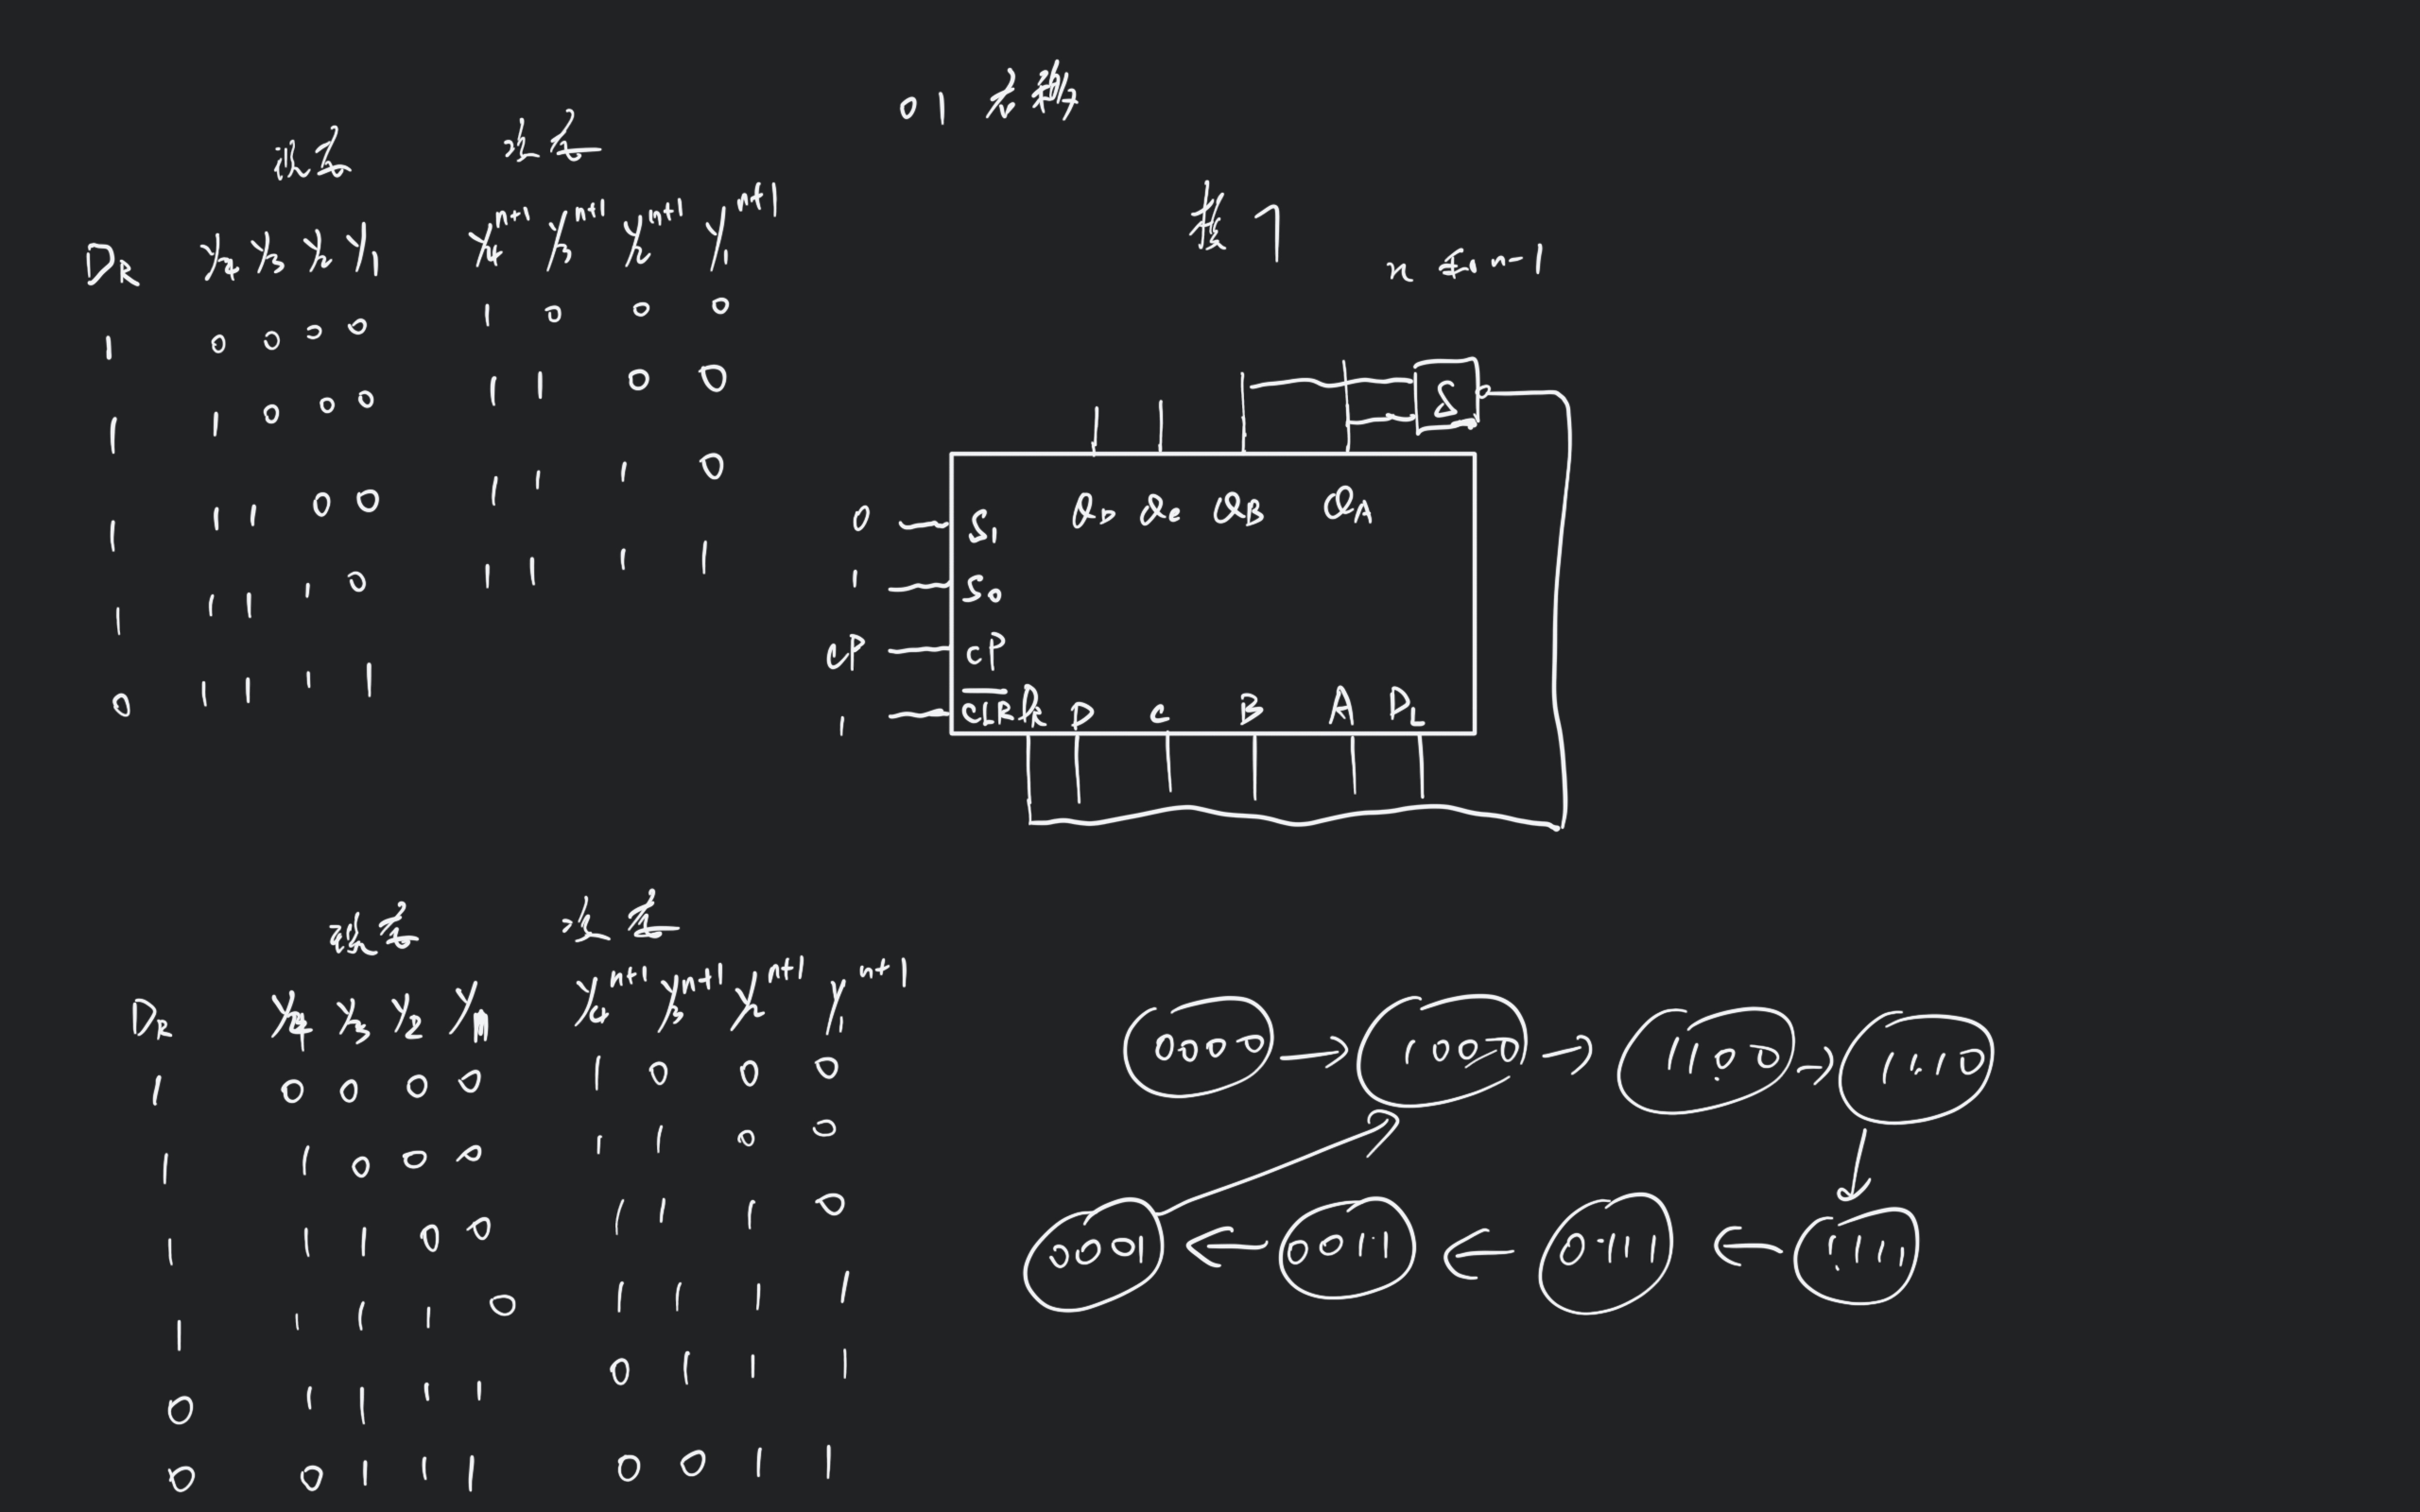 01 右移
现态 次态
D_R Y4 Y3 Y2 Y1 Y4^n+1 Y3^n+1 Y2^n+1 Y1^n+1
1 0 0 0 0 1 0 0 0
1 1 0 0 0 1 1 0 0
1 1 1 0 0 1 1 1 0
1 1 1 1 0 1 1 1 1
0 1 1 1 1
n n-1
&
Q_D Q_C Q_B Q_A
0 S1
1 S0
CP CP
1 CLR D_R D C B A D_L
现态 次态
D_R Y4 Y3 Y2 Y1 Y4^n+1 Y3^n+1 Y2^n+1 Y1^n+1
1 0 0 0 0 1 0 0 0
1 1 0 0 0 1 1 0 0
1 1 1 0 0 1 1 1 0
1 1 1 1 0 1 1 1 1
0 1 1 1 1 0 1 1 1
0 0 1 1 1 0 0 1 1
0000 → 1000 → 1100 → 1110
0001 ← 0011 ← 0111 ← 1111